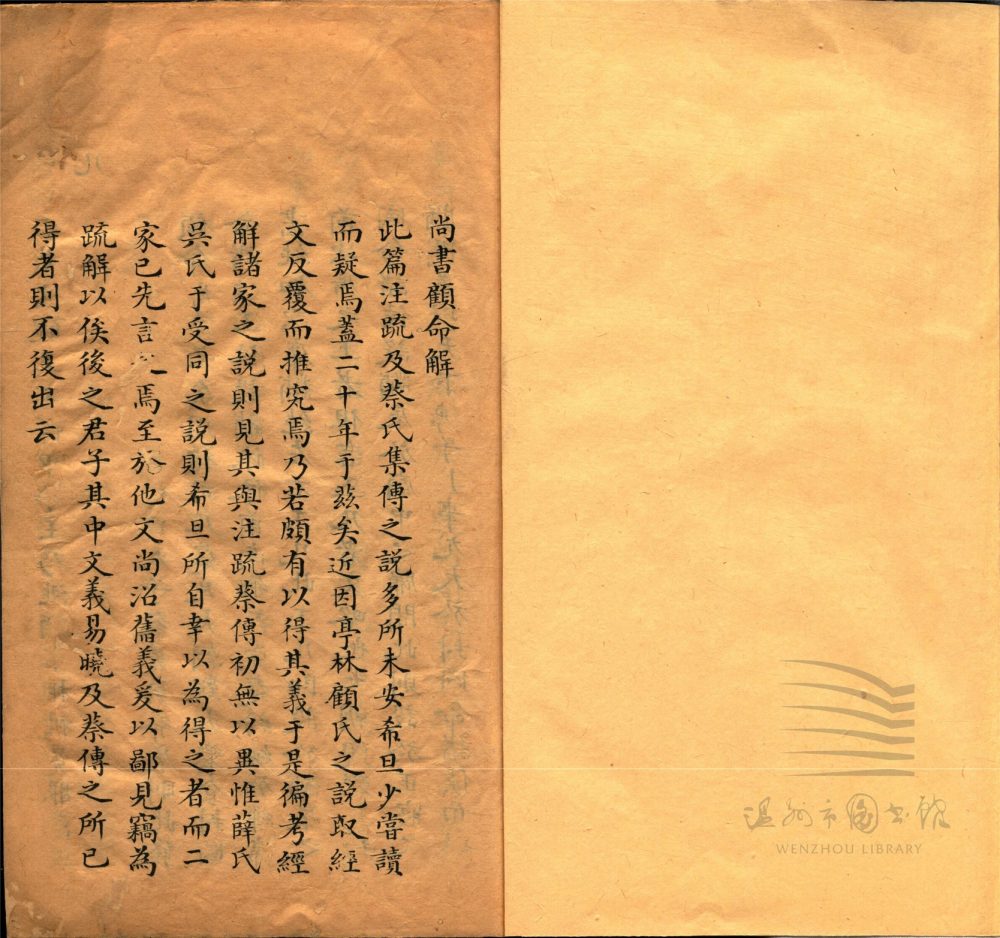 尚書顧命解
此篇注䟽及蔡氏集傳之說多所未安希旦少嘗讀
而疑焉蓋二十年于兹矣近因亭林顧氏之說取經
文反覆而推究焉乃若頗有以得其義于是徧考經
解諸家之說則見其與注䟽蔡傳初無以異惟薛氏
吳氏于受同之說則希旦所自幸以為得之者而二
家已先言之焉至於他文尚沿舊義爰以鄙見竊為
䟽解以俟後之君子其中文義易曉及蔡傳之所已
得者則不復出云
温州市图书馆
WENZHOU LIBRARY